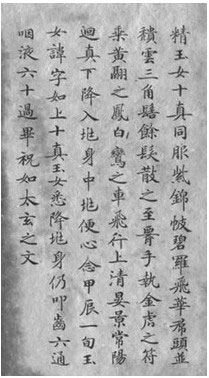 精玉女十真同服紫錦帔碧羅飛華帬頭並
積雲三角髻餘髮散之至𦝫手執金虎之符
乗黄翮之鳳白鸞之車飛行上清晏景常陽
迴真下降入地身中地便心念甲辰一旬玉
女諱字如上十真玉女悉降地身仍叩齒六通
咽液六十過畢祝如太玄之文